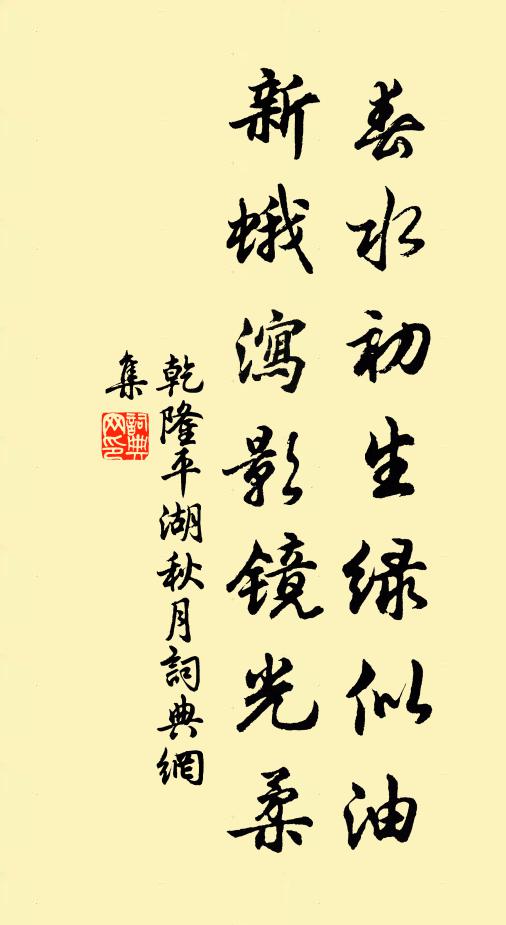 春水初生绿似油
新蛾瀉影镜光柔
乾隆平湖秋月詞典網
集
詞典
网印